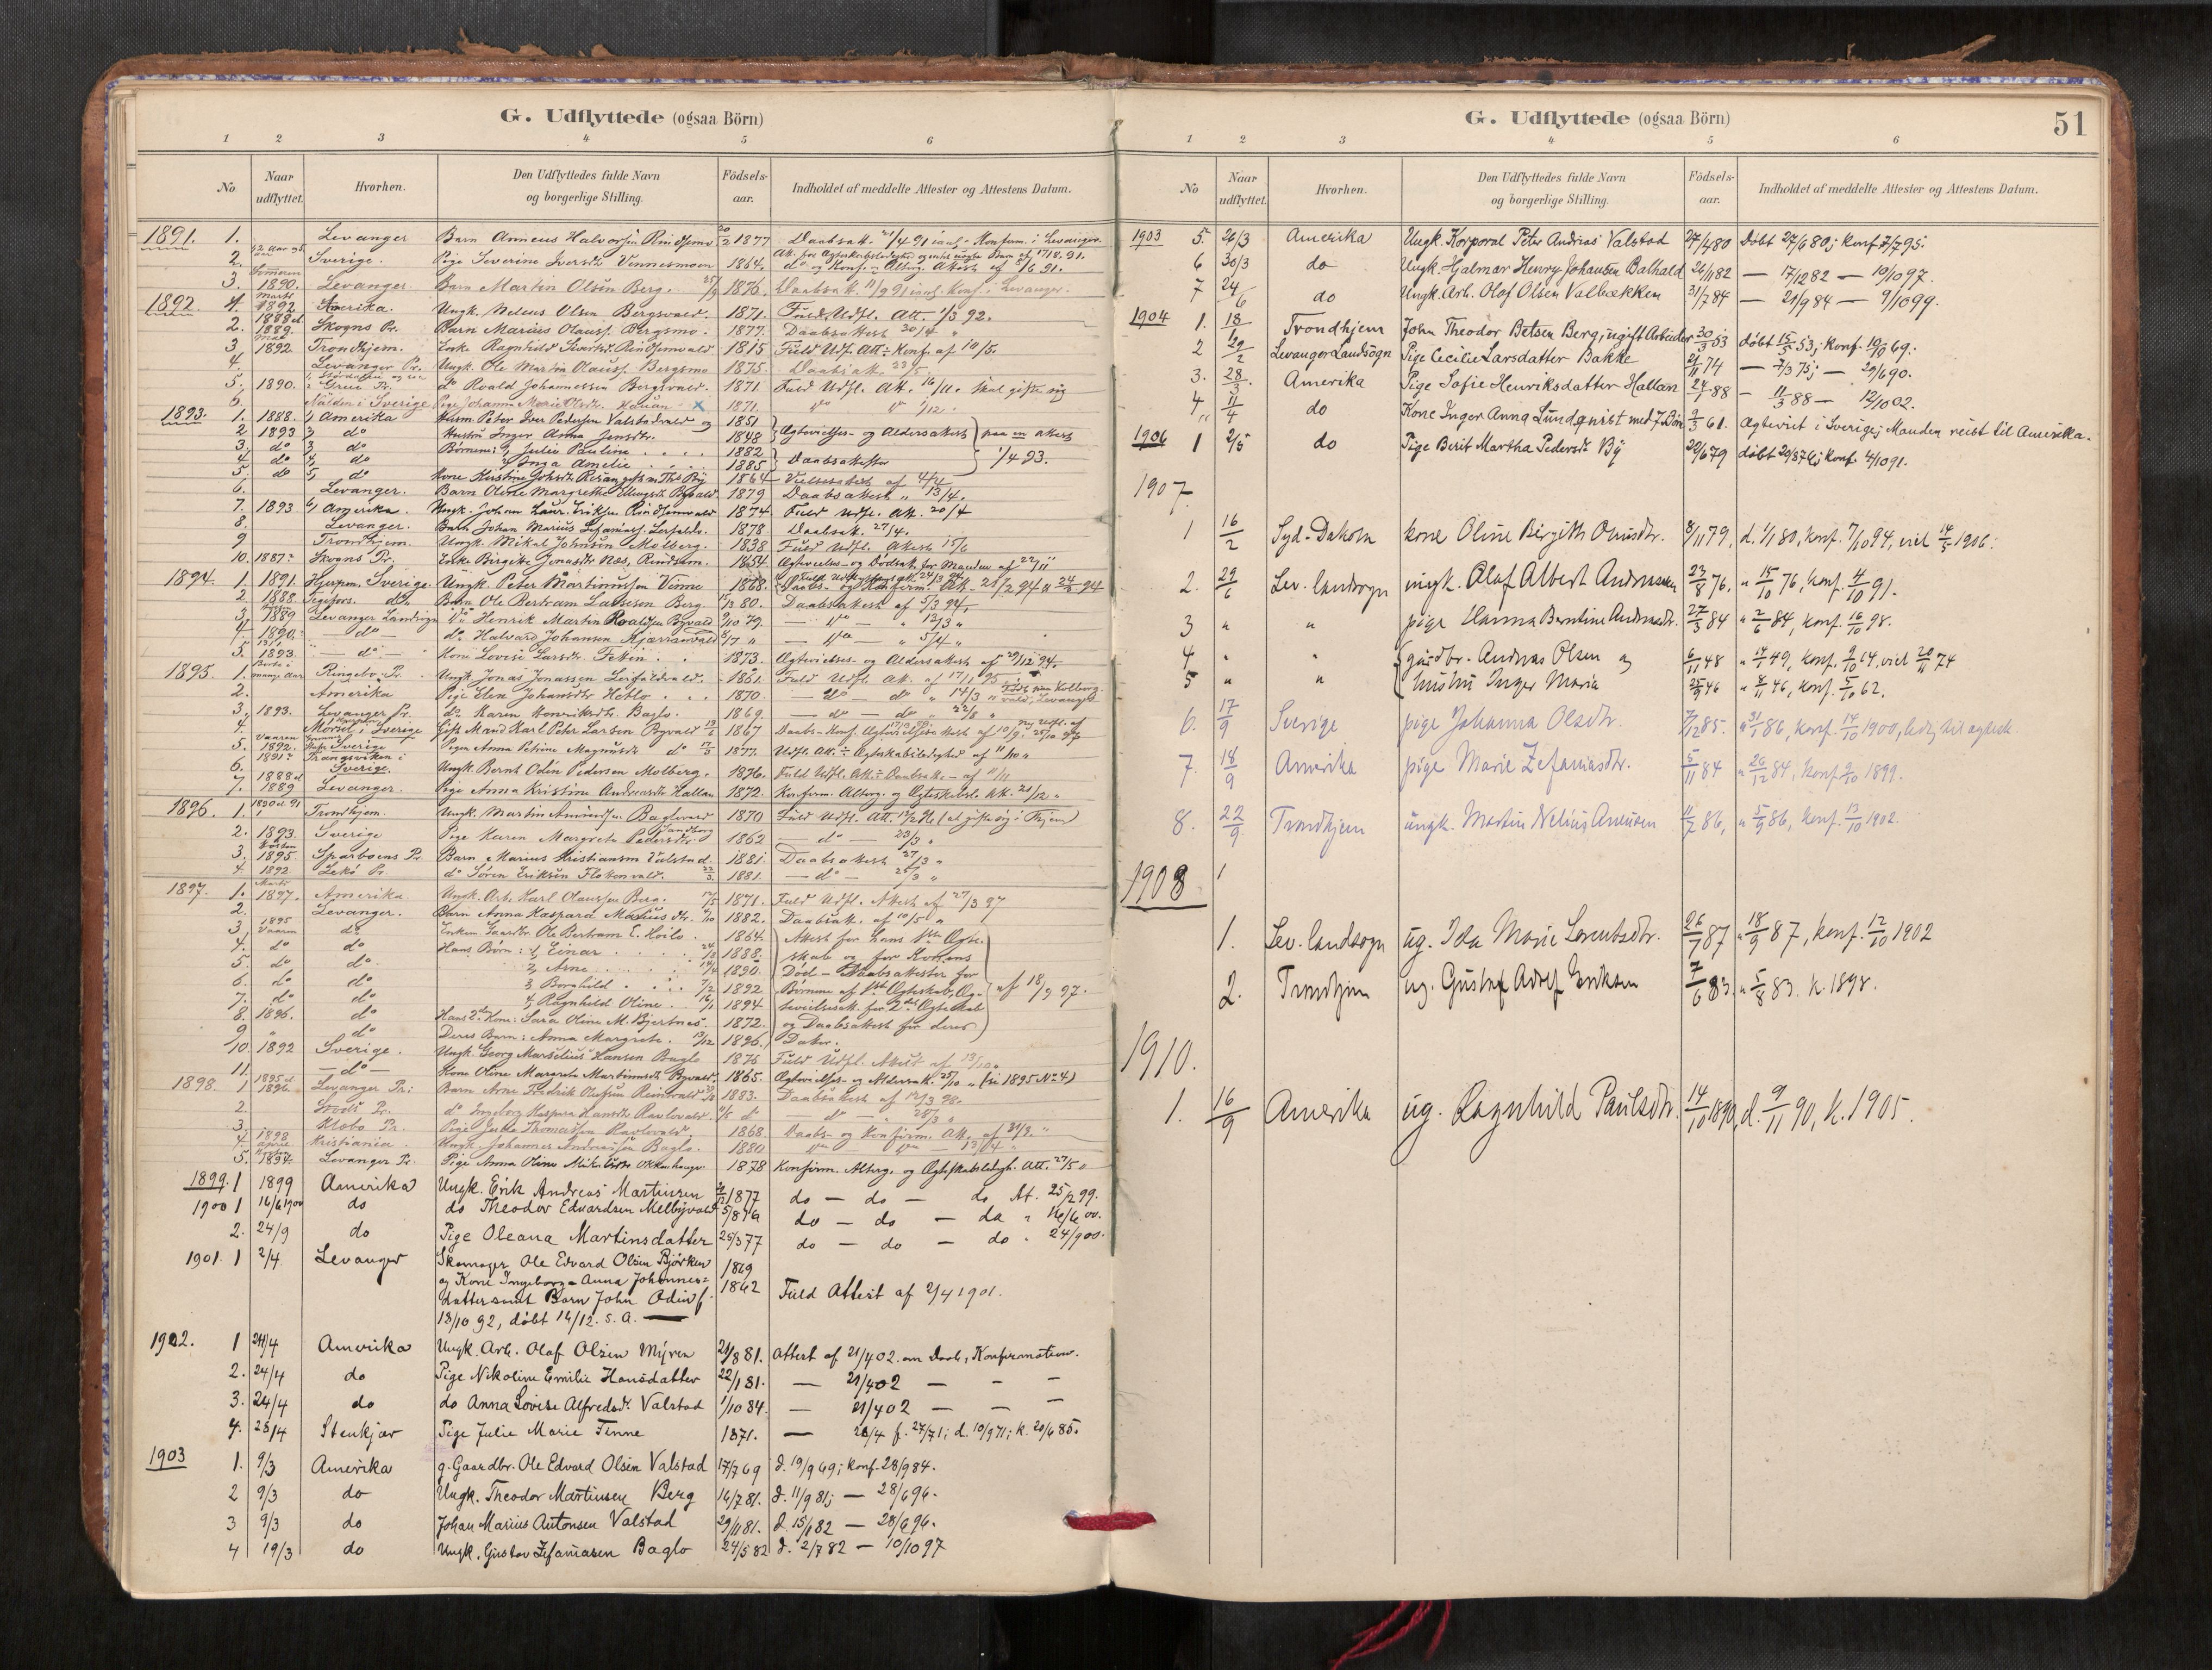 G. Udflyttede (ogsaa Börn)
1 2 3 4 5 6
No Naar udflyttet. Hvorhen. Den Udflyttedes fulde Navn og borgerlige Stilling. Födsels-aar. Indholdet af meddelte Attester og Attestens Datum.
1891. 1. Levanger Barn Anneus Halvorsen Rindsemv 20/2 1877 Daabsatt. 21/4 91 Konfirm. i Levanger
2. Sverige. Pige Severine Iversdtr. Vinnesmoen 1864.
3. Sommeren 1890. Levanger Barn Martin Olsen Berg. 1876. Daabsatt. 11/9 91 Konf. i Levanger.
1892. 1. Marts 1892 Amerika. Ungk. Neleus Olsen Bergsvald. 1871. Fuld Udfl. Att. 1/3 92.
2. 1888 el. 1889. Skogns Pr. Barn Marius Olauss. Bergsmo. 1877. Daabsattest 30/4 "
3 Mai 1892 Trondhjem. Enke Ragnhild Sivertsd. Rindsemvald 1815 Fuld Udfl. Att. ÷ Konf. af 10/5.
4. Levanger Pr. Ungk. Ole Martin Olauss. Bergsmo 1875. Daabsatt. 23/5
5. 1890. Grue Pr. do Roald Johannessen Bergsvald. 1871. Fuld Udfl. Att. 16/11. skal gifte sig
6. Nälden i Sverige Pige Johanna Marie Olsdtr. 1871. do do /12.
1893. 1. 1888. 1, Amerika Husm. Peter Iver Pedersen Valstadvald og 1851
2 1893 2, do Hustru Inger Anna Jensdtr. 1848 Ægtevielses- og Aldersattest paa en attest
3. do 3, do Börnene: 1, Julie Pauline 1882
4 do 4, do 2, Inga Amelie 1885 Daabsattester 1/4 93.
5. do 5, do Kone Kirstine Johsdtr. 1864 Vielsesattest af 4/4
6. Levanger. Barn Oline Margrethe Ellingsdtr. Byvald. 1879 Daabsattest " 13/4.
7. 1893. 6, Amerika. Ungk. Johan Laur. Eriksen Rindsemvald 1874. Fuld Udfl. Att. 20/4
8. Levanger. Barn Johan Marius Zefanias. Lerfaldv. 1878. Daabsatt. 27/4.
9 Trondhjem. Ungk. Mikal Johnsen Molberg. 1838 Fuld Udfl. Attest 15/6
10. 1887. Skogns Pr. Enke Birgitte Jonasdtr. Næs, Rindsem. 1854. Ægtevielses- og Dödsatt. for Manden af 22/11
1894. 1. 1891. Hjerpen. Sverige. Ungk. Peter Martinussen Vinne 1868. Daabs- og Konfirm. Att.
2. 1888. do. Barn Ole Bertram Larssen Berg. 80. Daabsattest af 5/3 94.
3, 1889 Levanger Landsogn do Henrik Martin Roaldsen Byvald 79. do " 13/3 "
4. 1890. do do Halvard Johansen 77 " do " 5/4 "
5. 1893. do Kone Lovise Larsdtr. 1873. Ægtevielses- og Aldersattest af 29/12 94.
1895. 1. Borte i mange Aar Ringebo Pr. Ungk. Jonas Jonassen Lerfaldvald. 1861. Fuld Udfl. Att. af 17/1 95
2. Amerika Pige Elen Johansdtr. Heblo 1870. do do " 14/3 "
3. 1893. Levanger Pr. do Karen Henriksdtr. Baglo. 1869. do do " 22/8 "
4. Morsel i Sverige Gift Mand Karl Peter Larsen Byvald 1867
5. Vaaren 1892. Sverige Pige Anna Petrine Magnusdtr. do 1877. Udfl. Att. ÷ Ægteskabsledighed af 11/10 "
6. 1891 Trangsviken i Sverige. Ungk. Bernt Odin Pedersen Molberg. 1876. Fuld Udfl. Att. ÷ Daabsatt. af 11/11
7. 1888 el. 1889 Levanger. Pige Anna Kristine Andreasdtr. Hallan 1872. Konfirm. Altерg. og Ægteskabsl. Att. 21/12 "
1896. 1. 1890 el. 91 Trondhjem. Ungk. Martin Amundsen Baglovald 1870 Fuld Udfl. Att. 17/2 96 (at gifte sig i Thjem)
2. 1893. Sverige Pige Karen Margrete Pedersdtr. Sandberg 1862 do 23/3 "
3. Hösten 1895. Sparboens Pr. Barn Marius Kristiansen Valstad. 1881. Daabsattest 27/3 "
4 1892 Lekö Pr. do Sören Eriksen Flotenvald. 1881. do 28/3 "
1897. 1. Marts 1897. Amerika. Ungk. Arb. Karl Olaussen Berg. 1871. Fuld Udfl. Attest af 27/3 97
2. Levanger. Barn Anna Kaspara Mariusdtr. 1882. Daabsatt. af 10/5 "
3. 1895 Vaaren do Enkem. Gaardbr. Ole Bertram E. Hoilo. 1864. Attest for hans 1ste Ægte-
4. do do Hans Börn: 1, Einar 1888. skab og for Konens
5. do do. 2, Arne 1890. Död - Daabsattester for
6. do do 3, Borghild 1892 Börnene af 1ste Ægteskab, Æg- af 18/9 97.
7. do do 4, Ragnhild Oline 1894 tevielsesatt. for 2det Ægteskab
8. 1896. do Hans 2den Kone: Sara Oline M. Bjertnes. 1872. og Daabsattest for deres
9 " do Deres Barn: Anna Margrete. 1896. Datter.
10. 1892 Sverige. Ungk. Georg Marselius Hansen Baglo 1875 Fuld Udfl. Attest af 13/10 "
11. do Kone Oline Margrete Martinusdtr. Byvald. 1865. Ægtevielses- og Aldersatt. 25/10 " (se 1895 No 4)
1898. 1 1895 el. 1896. Levanger Pr. Barn Arne Fredrik Olufsen Reinsvald 1883. Daabsattest af 12/3 98.
2. Stods Pr. do Ingeborg Kaspara Hansdtr. Ravlovald. do do 28/3 "
3. Klæbo Pr. Pige Julie Thomassen Ravlovald. 1868. Daabs- og Konfirm. Att. af 31/3 "
4. 1898 April Kristiania. Ungk. Johannes Andreassen Baglo. 1880 do do 13/4 "
5. 1894. Levanger Pr. Pige Anna Oline 1878 Konfirm. Alterg. og Ægteskabsledigh. Att. 27/5 "
1899. 1 1899 Amerika Ungk. Erik Andreas Martinsen 1877 do — do — do At. 25/2 99.
1900 1 16/6 1900 do do Theodor Edvardsen Melbyvald 5/8 76 do — do — do " 16/6 00.
2. 24/9 do Pige Oleana Martinsdatter 25/3 77 do — do — do " 24/9 00.
1901. 1 2/4 Levanger Skomager Ole Edvard Olsen Björken 1869
og Kone Ingeborg Anna Johannes= 1862 Fuld Attest af 2/4 1901.
datter samt Barn John Odin f.
18/10 92, döbt 14/12. s. a. —
1902. 1 24/4 Amerika Ungk. Arb. Olaf Olsen Myren 21/8 81. Attest af 21/4 02 om Daab, Konfirmation.
2. 24/4 do Pige Nikoline Emilie Hansdatter 22/1 81. — 21/4 02 — - —
3. 24/4 do do Anna Lovise Alfredsd. Valstad 1/10 84. — 21/4 02 — — —
4. 25/4 Stenkjær Pige Julie Marie Finne 1871. — 28/4 f. 27/7 71; d. 10/9 71; k. 20/6 85.
1903 1. 9/3 Amerika g. Gaardbr. Ole Edvard Olsen Valstad 17/7 69 d. 19/9 69; konf. 28/9 84.
2 9/3 do Ungk. Theodor Martinsen Berg 16/7 81. d. 11/9 81; — 28/6 96.
3 9/3 do Johan Marius Antonsen Valstad 29/11 81. d. 15/1 82 — 28/6 96.
4 19/3 do Ungk. Gustav Zefaniasen Baglo 24/5 82 d. 2/7 82 — 10/10 97
G. Udflyttede (ogsaa Börn) 51
1 2 3 4 5 6
No Naar udflyttet. Hvorhen. Den Udflyttedes fulde Navn og borgerlige Stilling. Födsels-aar. Indholdet af meddelte Attester og Attestens Datum.
1903 5. 26/3 Amerika Ungk. Korporal Peter Andrias Valstad 27/4 80 Döbt 27/6 80; konf. 7/7 95.
6 30/3 do Ungk. Hjalmar Henry Johansen Balhald 26/11 82 — 17/12 82 — 10/10 97.
7 24/6 do Ungk. Arb. Olaf Olsen Valbækken 31/7 84 — 21/9 84 — 9/10 99.
1904 1. 18/ Trondhjem John Theodor Betsen Berg, ugift Arbeider 30/3 53 döbt 15/5 53; konf. 69.
2 29/2 Levanger Landsogn Pige Cecilie Larsdatter Bakke 21/11 74 — 7/3 75; — 29/6 90.
3. 28/3. Amerika Pige Sofie Henriksdatter Hallan 24/1 88 — 11/3 88 — 12/10 02.
4 11/4 do Kone Inger Anna Lundqvist med 7 Börn 9/3 61. Ægteviet i Sverige; Manden reist til Amerika.
1906 1 2/5 do Pige Berit Martha Pedersd. By 20/6 79 döbt konf. 4/10 91.
1907.
1 16/2 Syd-Dakota kone Oline Birgith Olausdtr. 8/11 79, d. 1/1 80, konf. 7/10 94, viel 14/5 1906.
2. 29/6 Lev. landsogn ungk. Olaf Albert Andreassen 23/8 76, " 15/10 76, konf. 4/10 91.
3 " " pige Hanna Berntine Andreasdr. 27/3 84 " 2/6 84, konf. 16/10 98.
4 " " gaardbr. Andreas Olsen og 6/11 48 " 14/1 49, konf. 9/10 64, viet 20/11 74
5 " " hustru Inger Maria 25/9 46 " 8/11 46, konf. 5/10 62.
6. 17/9 Sverige pige Johanna Olsdtr. 7/12 85. " 31/1 86, konf. 14/10 1900, ledig til ægtesk.
7. 18/9 Amerika pige Marie Zefaniasdtr. 5/11 84 " 26/12 84, konf. 9/10 1899.
8. 22/9 Trondhjem ungk. Martin Nelius Aneusen 11/7 86, " 5/9 86, konf. 13/10 1902.
1908 1
1. Lev. landsogn ug. Ida Marie Lorentsdtr. 26/7 87 " 18/9 87, konf. 12/10 1902
2. Trondhjem ug. Gustaf Adolf Eriksen 7/6 83. " 5/8 83. k. 1898.
1910.
1. 16/9 Amerika ug. Ragnhild Paulsdtr. 14/10 1890, d. 9/11 90, k. 1905.